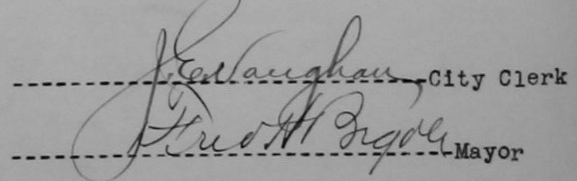 J. E. Vaughan City Clerk
Fred H Mayor